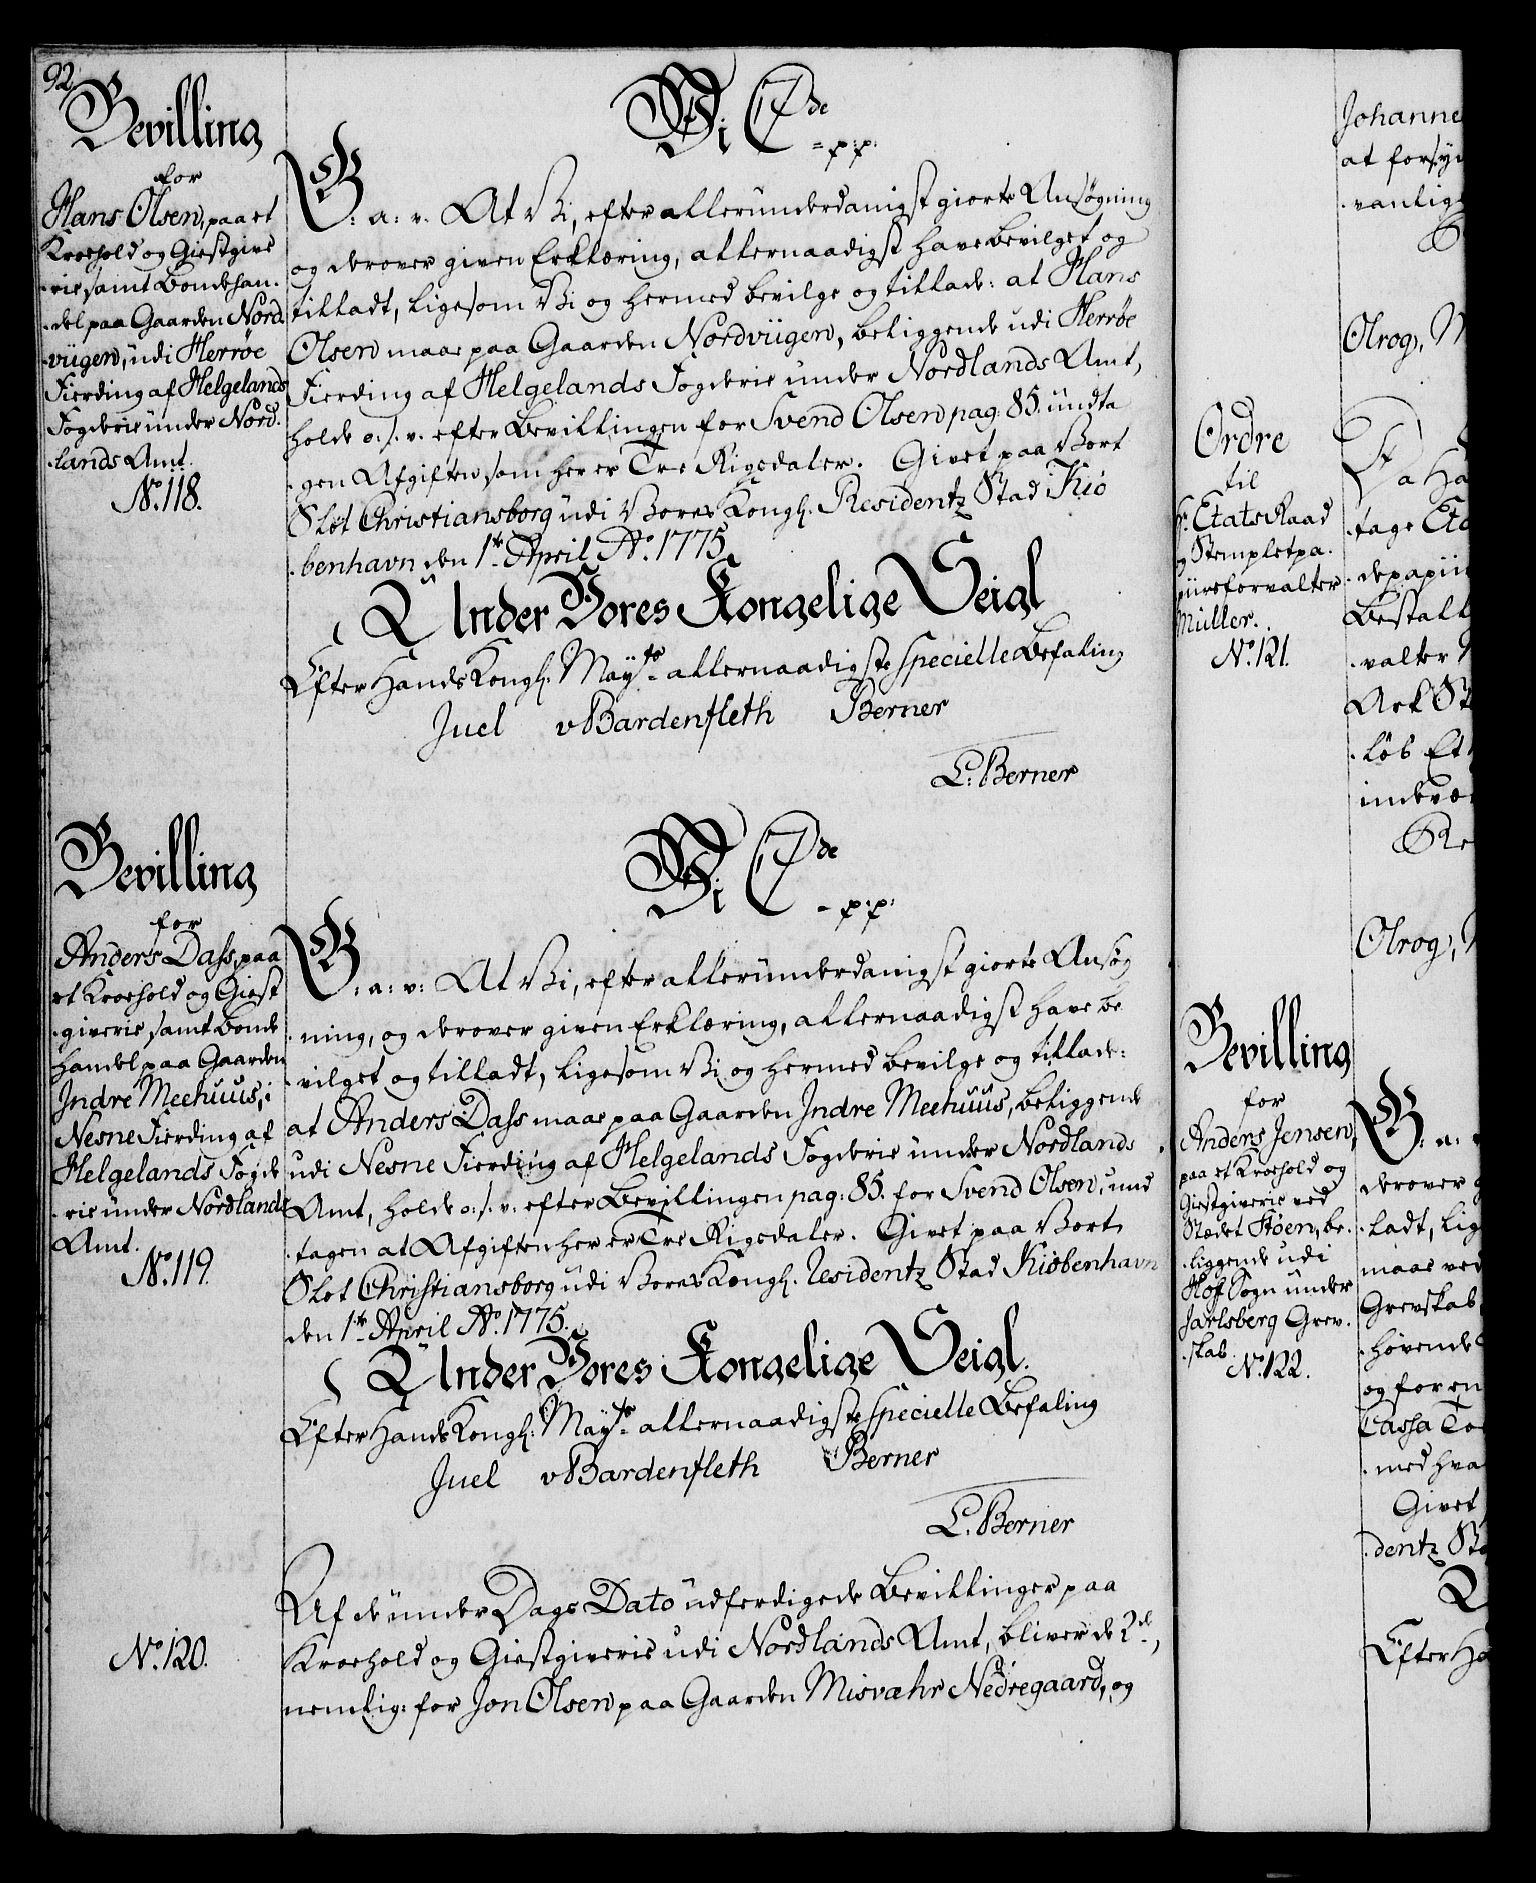 92.
Bevilling
for
Hans Olsen, paa et
Kroehold og Giestgive
-rie samt Bondehan-
-del paa Gaarden Nord-
-viigen, udi Herrøe
Fierding af Helgelands
Fogderie under Nord-
-lands Amt.
No. 118.
Vi C 7de
= p:p:
G: a: v. At Vi, efter allerunderdanigst giorte Ansøgning
og derover given Erklæring, allernaadigst have bevilget og
tilladt, ligesom Vi og hermed bevilge og tillade: at Hans
Olsen maae paa Gaarden Nordviigen, beliggende udi Herrøe
Fierding af Helgelands Fogderie under Nordlands Amt,
holde o: s. v. efter Bevillingen for Svend Olsen pag: 85. undta
-gen Afgiften som her er Tre Rigsdaler. Givet paa Vort
Slot Christiansborg udi Vores Kongl. Residentz Stad Kiø
-benhavn den 1te April Ao. 1775.
Under Vores Kongelige Seigl
Efter Hands Kongl: Mayts allernaadigste specielle Befaling
Juel v Bardenfleth Berner
L. Berner
Bevilling
for
Anders Dass, paa
et Kroehold og Giest
-giverie, samt bonde
handel paa Gaarden
Indre Meehuus, i
Nesne Fierding af
Helgelands Fogde
-rie under Nordlands
Amt.
No. 119.
Vi C 7de
- p:p:
G: a: v: At Vi, efter allerunderdanigst giorte Ansøg
-ning, og derover given Erklæring, allernaadigst have be
-vilget og tilladt, ligesom Vi og hermed bevilge og tillade:
at Anders Dass maae paa Gaarden Indre Meehuus, beliggende
udi Nesne Fierding af Helgelands Fogderie under Nordlands
Amt, holde o: s. v: efter Bevillingen pag: 85. for Svend Olsen, und
-tagen at Afgiften her er Tre Rigsdaler. Givet paa Vort
Slot Christiansborg udi Vores Kongl. Residentz Stad Kiøbenhavn
den 1te April Ao. 1775.
Under Vores Kongelige Seigl.
Efter Hands Kongl: Mayts allernaadigste specielle Befaling
Juel v Bardenfleth Berner
L. Berner
No. 120.
Af de under Dags Dato udferdigede Bevillinger paa
Kroehold og Giestgiverie udi Nordlands Amt, bliver de 2de,
nemlig: for Jon Olsen paa Gaarden Misvæhr Nedregaard, og
Ordre
til
Hr. EtatsRaad
og Stempletpa-
piirsforvalter
Müller.
No. 121.
Bevilling
for
Anders Jensen,
paa et Kroehold og
Giestgiverie ved
Stædet Støen, be-
-liggende udi
Hof Sogn under
Jarlsberg Grev-
-skab.
No. 122.
Johanne
at forsyn
-vanlig
Olrog, M
Da Ha
-tage Eta
-depapii
Bestalt
-valter M
Ark St
-løb Et
indevæ
Olrog, M
G: a: v
derover g
-ladt, lig
maae ved
Grevskab
-hørende
og for en
Cassa To
-med hva
Givet
-dentz Sta
Efter Ha